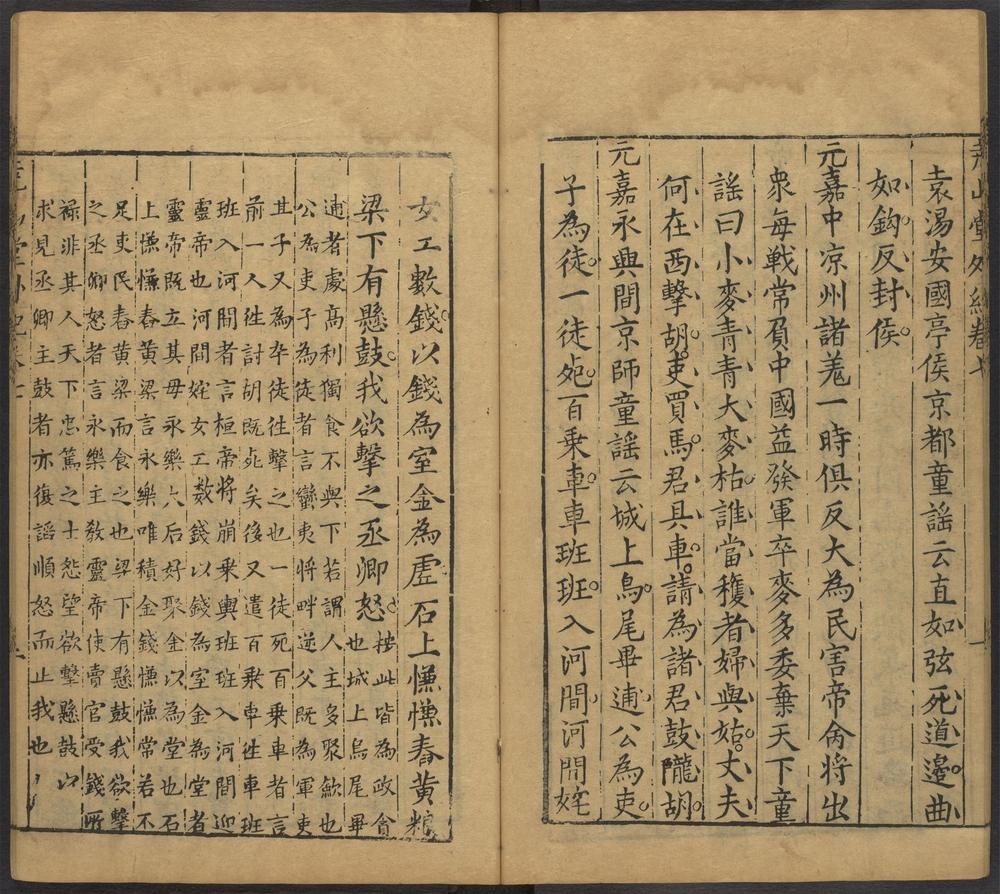 堯山堂外紀卷七
袁湯安國亭侯京都童謠云直如弦死道邊曲
如鈎反封侯
元嘉中凉州諸羌一時俱反大為民害帝命將出
衆每戰常負中國益發軍卒麥多委棄天下童
謠曰小麥青青大麥枯誰當穫者婦與姑丈夫
何在西擊胡吏買馬君具車請為諸君鼓隴胡
元嘉永興間京師童謠云城上烏尾畢逋公為吏
子為徒一徒死百乘車車班班入河間河間姹
女工數錢以錢為室金為虗石上慊慊舂黃粱
梁下有懸鼓我欲擊之丞卿怒
按此皆為政貪
也城上烏尾畢
逋者處高利獨食不與下若謂人主多聚歛也
公為吏子為徒者言蠻夷將畔逆父既為軍吏
其子又為卒徒往擊之也一徒死百乗車者言
前一人往討胡既死矣後又遣百乗車往車班
班入河間者言桓帝將崩乗輿班班入河間迎
靈帝也河間姹女工數錢以錢為室金為堂者
靈帝既立其母永樂太后好聚金以為堂也石
上慊慊舂黃梁言永樂唯積金錢慊慊常若不
足吏民舂黃梁而食之也梁下有懸鼓我欲擊
之丞卿怒者言永樂主教靈帝使賣官受錢所
祿非其人天下忠篤之士怨望欲擊懸鼓以
求見丞卿主鼓者亦復謟順怒而止我也